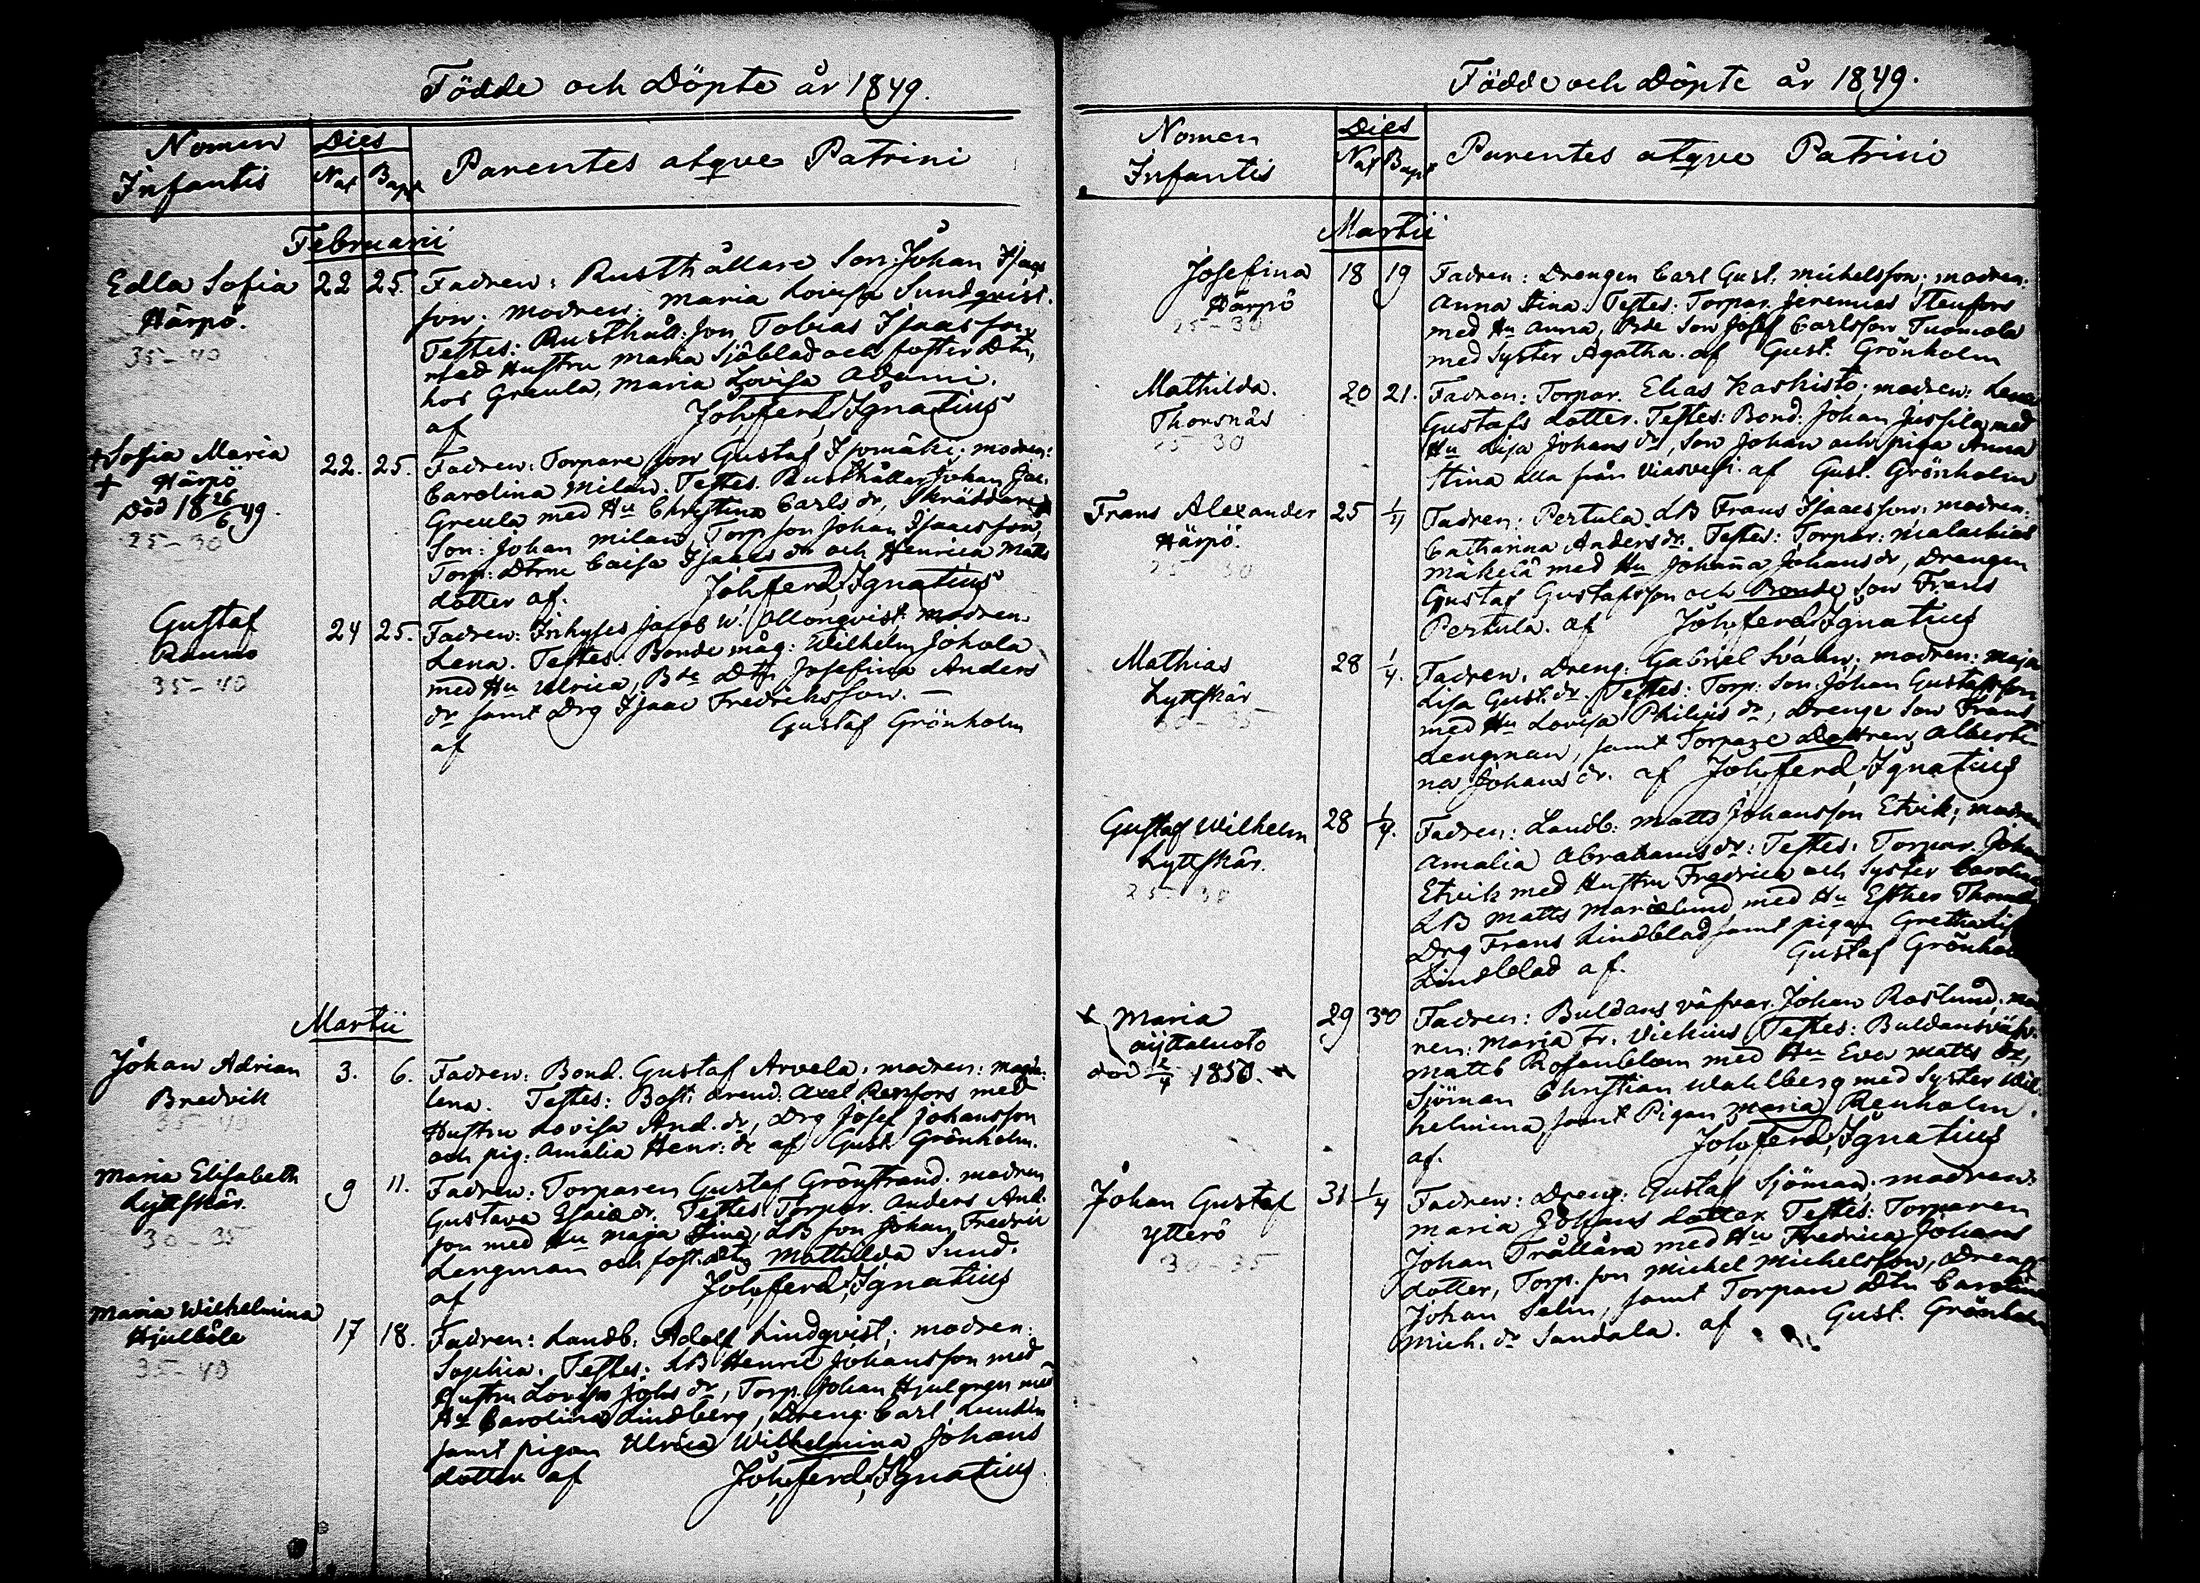 Födde och Döpte år 1849.
Nomen Infantis
Dies
Nat Bapt
Parentes atqve Patrini
Februarii
Edla Sofia
Härpö.
35-40
22 25.
Fadren: Rusthållare Son: Johan Isaacs
son. modren: Maria Lovisa Sundqvist.
Testes: Rusthåll: son Tobias Isaacsson
med Hustru Maria Sjöblad och foster Dtr
hos Greula, Maria Lovisa Adami.
af Joh, ferd, Ignatius
+ Sofia Maria
+ Härpö
Död 18 26/6 49.
25-30
22. 25.
Fadren: Torpare son Gustaf Isomäki; modren:
Carolina Milan. Testes. Rusthållar Johan
Greula med Hu Christina Carls dr, Skräddare
Son: Johan Milan, Torp son Johan Isaacsson,
Torp: Dtrne Caisa Isaacs dr och Henrica Matts
dotter af. Joh, ferd, Ignatius
Gustaf
Raumo
35-40
24 25.
Fadren: Inhyses Jacob W. Ollonqvist. modren
Lena. Testes. Bonde måg: Wilhelm Johola
med Hu Ulrica, Bde Dtr Josefina Anders
dr samt Drg Isaac Fredriksson. —
af Gustaf Grönholm
Martii
Johan Adrian
Bredvik
35-40
3. 6.
Fadren: Bond. Gustaf Arvela. modren: Magda:
lena. Testes: Bost: arend: Axel Renfors med
Hustru Lovisa And. dr, Drg Josef Johansson
och pig: Amalia Henr: dr af Gust. Grönholm.
Maria Elisabeth
Lyttskär.
30-35
9 11.
Fadren: Torparen Gustaf Grönstrand. modren
Gustava Esaiæ dr. Testes Torpar. Anders And.
son med Hu Maja Stina, LB son Johan Fredric
Lengman och fost: dtr Mathilda Sund.
af Joh, ferd, Ignatius
Maria Wilhelmina
Hjulböle
35-40
17 18.
Fadren: Landb: Adolf Lindqvist; modren:
Sophia. Testes: LB Henric Johansson med
Hustru Lovisa Johs dr, Torp. Johan Hjulgren med
Hu Carolina Lindberg, Dreng: Carl Lundén
samt pigan Ulrica Wilhelmina Johans
dotter af Joh, ferd, Ignatius
Födde och Döpte år 1849.
Nomen Infantis
Dies
Nat Bapt
Parentes atqve Patrini
Martii
Josefina
Härpö
25-30
18 19
Fadren: Drengen Carl Gust. Michelsson; modren:
Anna Stina. Testes: Torpar. Jeremias Stenfors
med Hu Anna, Bde Son Josef Carlsson Tuomola
med Syster Agatha. af Gust. Grönholm
Mathilda.
Thorsnäs
25-30
20 21.
Fadren: Torpar. Elias Kaskisto; modren: Lena
Gustafs dotter. Testes: Bond: Johan Jussila med
Hu Lisa Johans dr, Son Johan och piga Anna
Stina alla från Viasvesi. af Gust. Grönholm
Frans Alexander
Härpö.
25-30
25 1/4
Fadren: Pertula LB Frans Isaacsson: modren:
Catharina Anders dr. Testes: Torpar: Malachias
Mäkelä med Hu Johanna Johans dr, Drengen
Gustaf Gustafsson och Bonde Son Frans
Pertula. af Joh, ferd, Ignatius
Mathias
Lyttskär
30-35
28 1/4.
Fadren. Dreng: Gabriel Svahn; modren: Maja
Lisa Gust. dr. Testes: Torp: Son. Johan Gustafsson
med Hu Lovisa Philips dr, Drenge Son Frans
Lengman, samt Torpare Dottren Alberti-
na Johans dr. af Joh, ferd, Ignatius
Gustaf Wilhelm
Lyttskär.
25-30
28 1/4.
Fadren: Landb: Matts Johansson Etvik; modren
Amalia Abrahams dr: Testes: Torpar. Johan
Etvik med Hustru Fredrica och Syster Carolina
LB Matts Marielund med Hu Esther Thomæ
Drg Frans Lindblad samt pigan Gretha Lis
Lindblad af. Gustaf Grönhol
Maria
död 2/4 1850.
29 30
Fadren: Buldans väfvar. Johan Roslund; mod
ren: Maria Fr. Vichius Testes: Buldansväfv.
Matts Rosenblom med Hu Eva Matts dr,
Sjöman Christian Wahlberg med Syster Wil-
helmina samt Pigan Maria Renholm.
af. Joh, ferd, Ignatius
Johan Gustaf
Ytterö
30-35
31 1/4
Fadren: Dreng: Gustaf Sjöman; modren:
Maria Johans dotter Testes: Torparen
Johan Trållära med Hu Fredrica Johans
dotter, Torp. son Michel Michelsson, Dreng
Johan Selin, samt Torpare Dtr Carolina
Mich. dr Sandala. af Gust. Grönholm